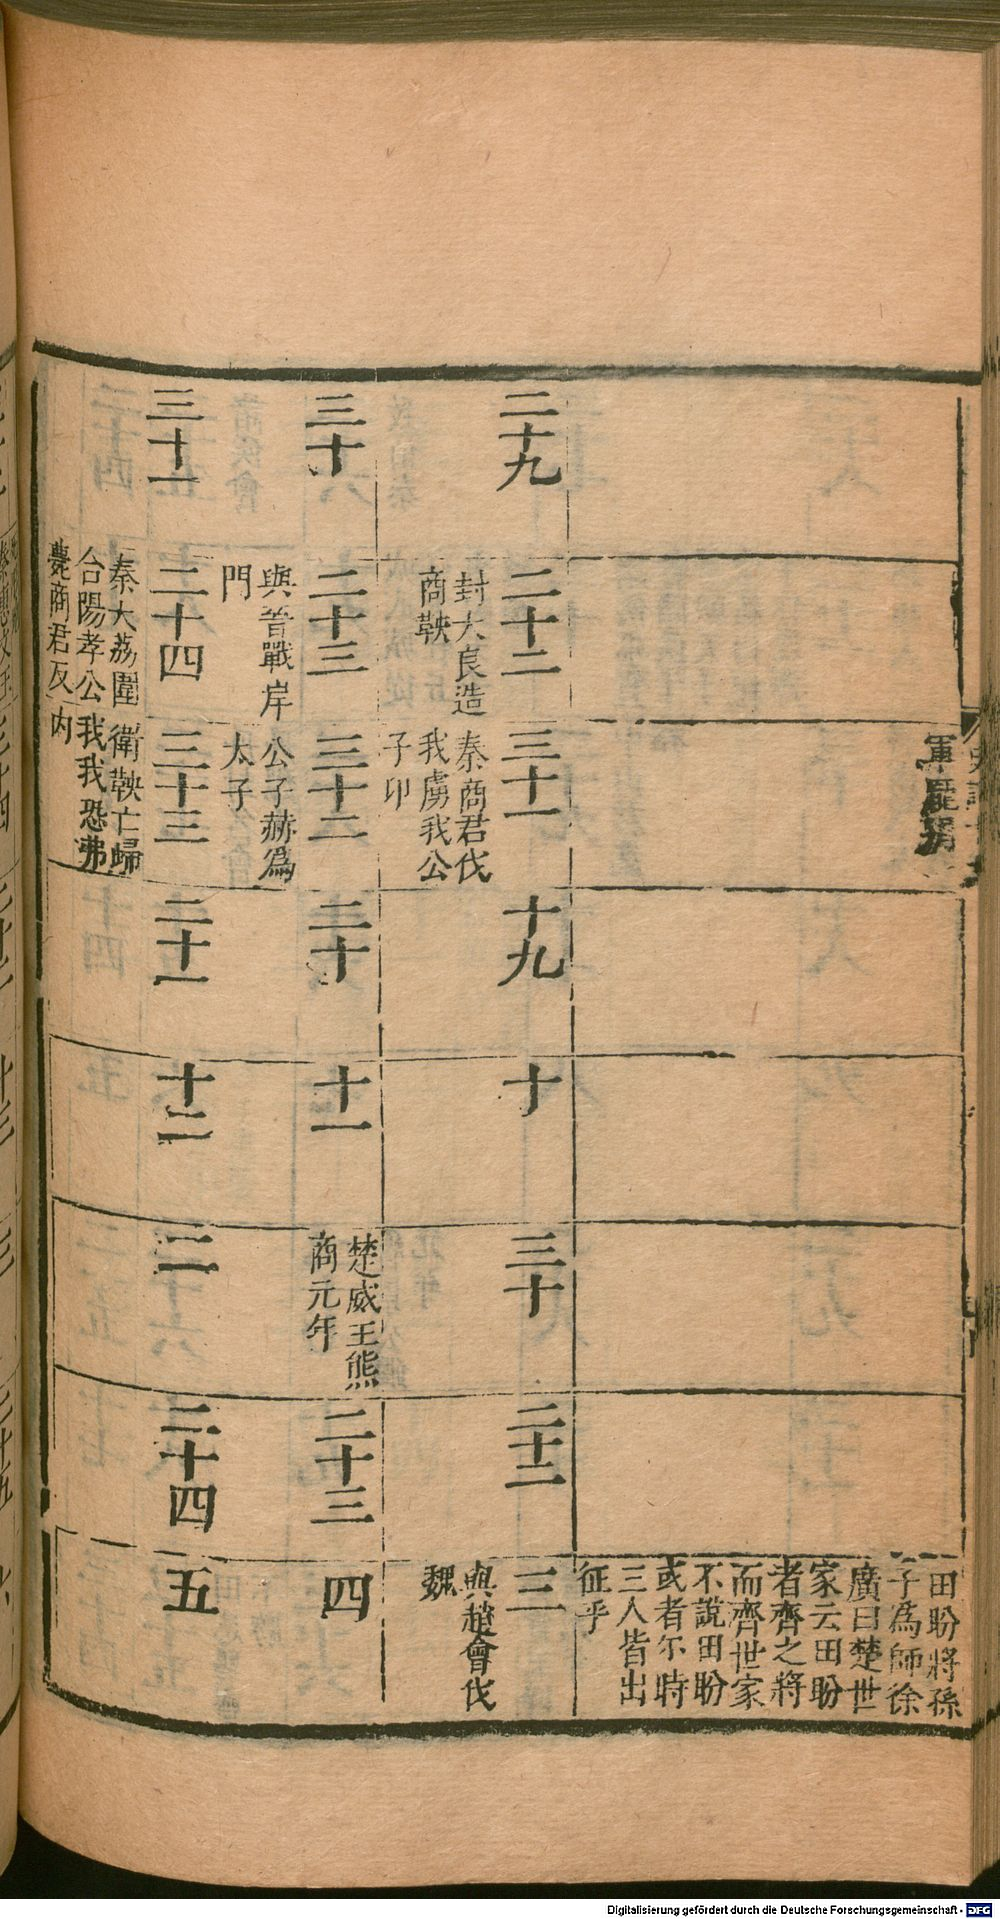 軍龐涓
田盼將孫
子爲師徐
廣曰楚世
家云田盼
者齊之將
而齊世家
不說田盼
或者尓時
三人皆出
征乎
二十九
二十二
封大良造
商鞅
三十一
秦商君伐
我虜我公
子印
十九
十
三十
二十二
三
與趙會伐
魏
三十
二十三
與晉戰岸
門
三十二
公子赫爲
太子
二十
十一
楚威王熊
商元年
二十三
四
三十一
二十四
秦大荔圍
合陽孝公
薨商君反
三十三
衛鞅亡歸
我我恐弗
内
二十一
十二
二
二十四
五
Digitalisierung gefördert durch die Deutsche Forschungsgemeinschaft - DFG